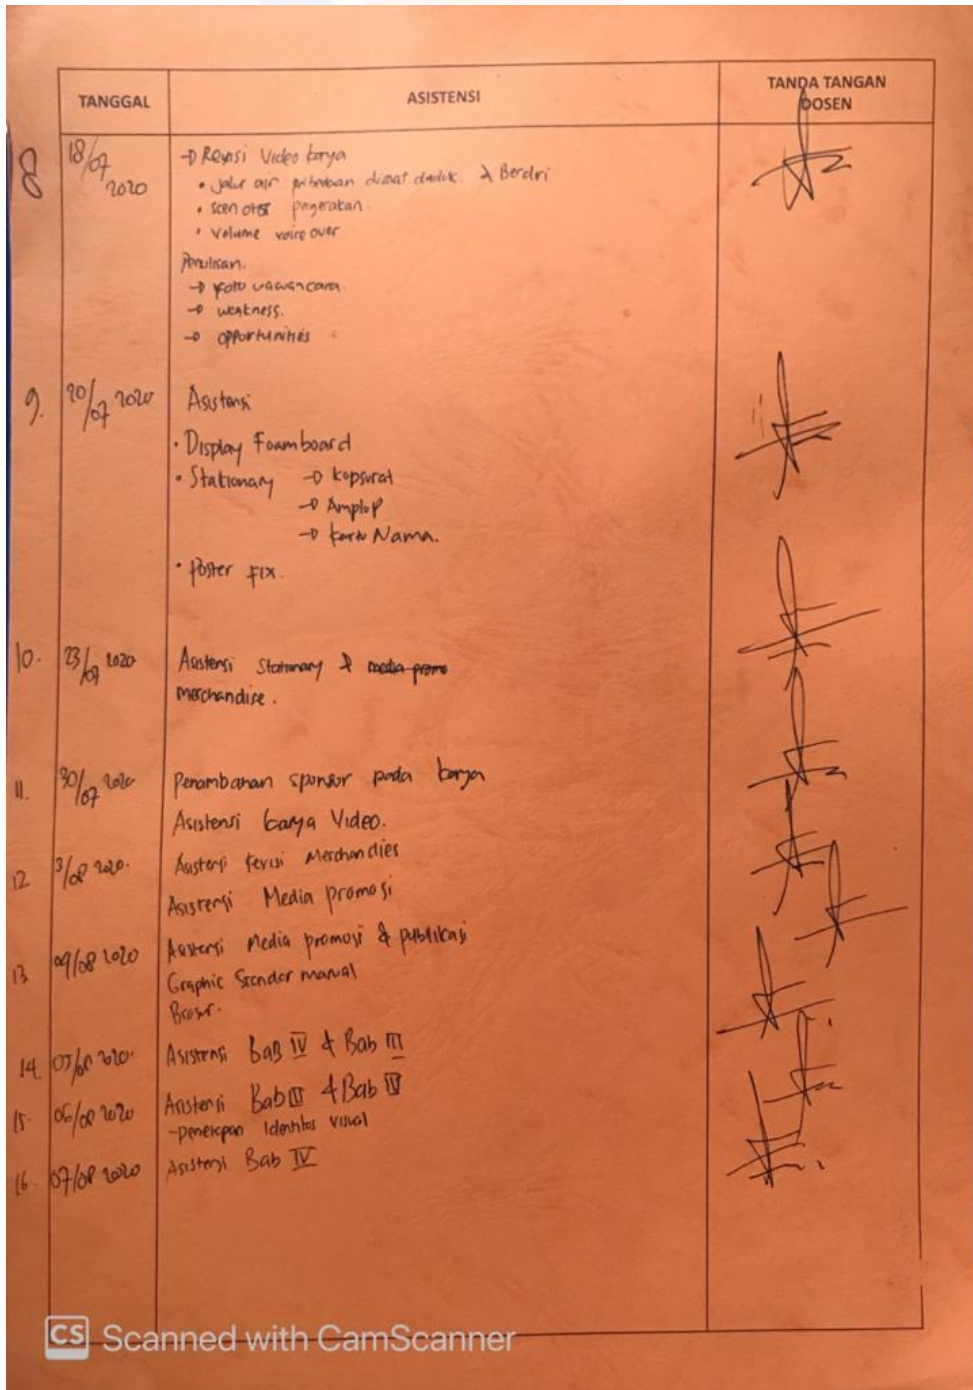 TANGGAL ASISTENSI TANDA TANGAN
DOSEN
8 18/07 2020 → Revisi Video karya
• jalur air perbedaan disaat duduk & Berdiri
• scen otot pergerakan.
• volume voice over
Penulisan.
→ Foto wawancara.
→ weakness.
→ opportunities
9. 20/07 2020 Asistensi
• Display Foamboard
• Stationary → kopsurat
→ Amplop
→ kartu Nama.
• Poster fix.
10. 23/07 2020 Asistensi Stationary & media promo
merchandise.
11. 30/07 2020 Penambahan sponsor pada karya
Asistensi karya Video.
12 3/08 2020. Asistensi revisi Merchandies
Asistensi Media promosi
13 04/08 2020 Asistensi Media promosi & publikasi
Graphic Standar manual
Brosur.
14 05/08 2020. Asistensi BAB IV & Bab III
15. 06/08 2020 Asistensi Bab III & Bab IV
- penerapan Identitas visual
16. 07/08 2020 Asistensi Bab IV
CS Scanned with CamScanner